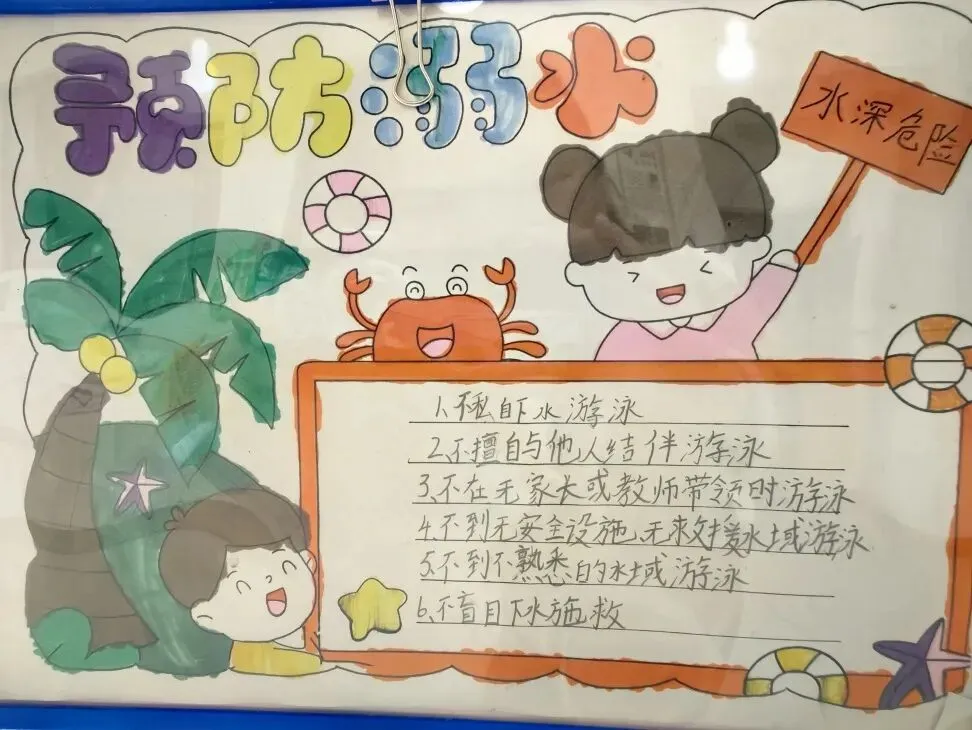 预防溺水
水深危险
1、不私自下水游泳
2、不擅自与他人结伴游泳
3、不在无家长或教师带领时游泳
4、不到无安全设施、无救援水域游泳
5、不到不熟悉的水域游泳
6、不盲目下水施救